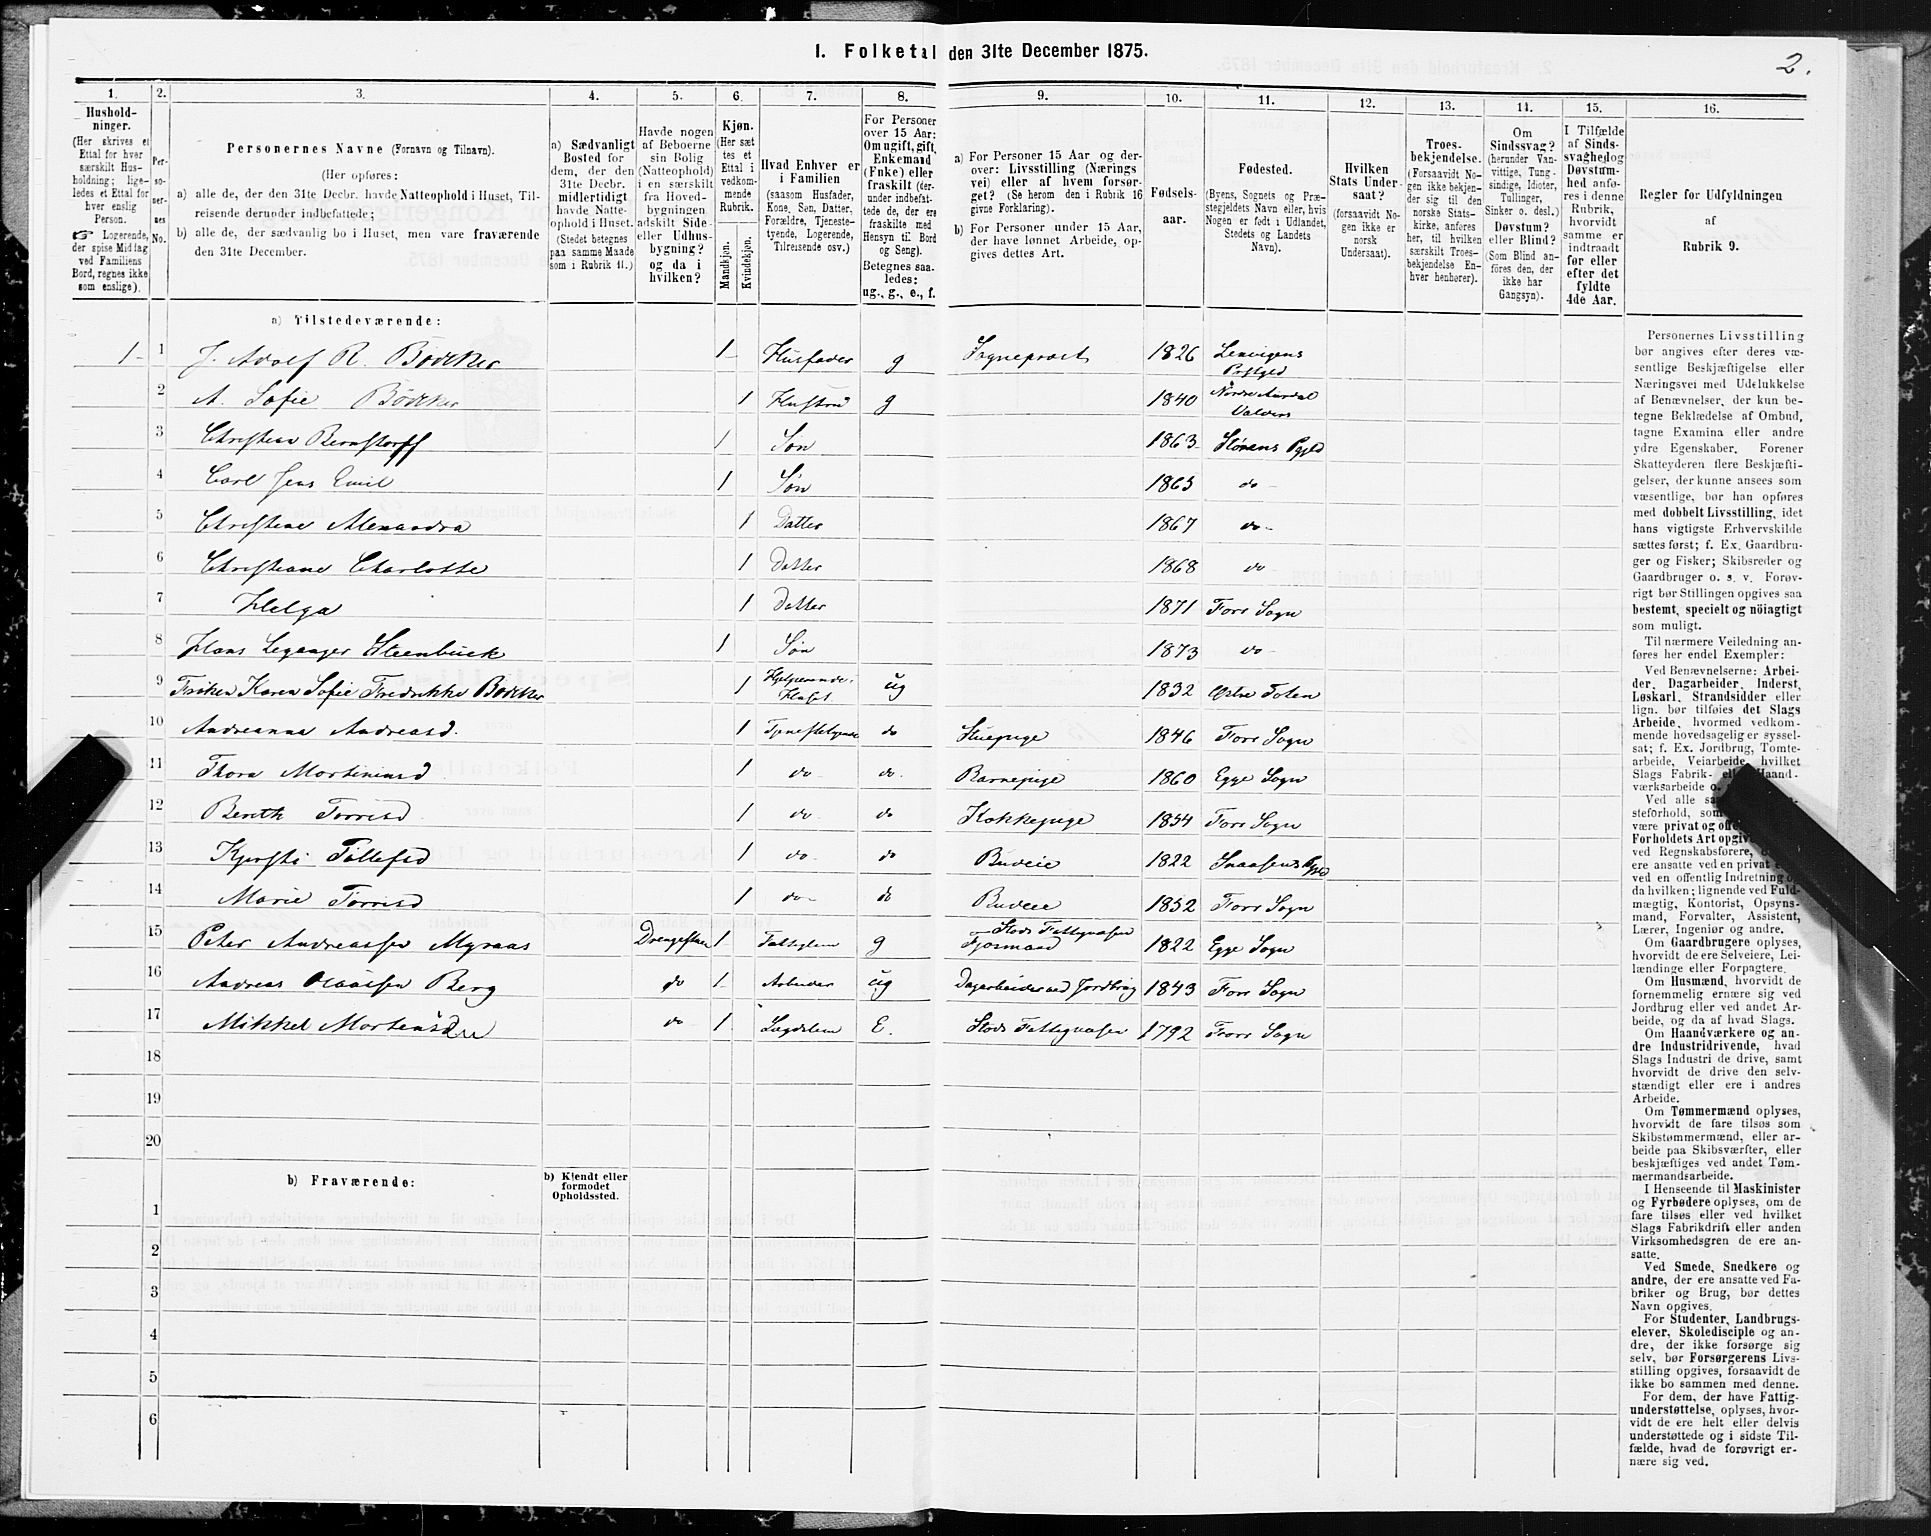 1. Folketal den 31te December 1875.
2.
1.
Hushold-
ninger.
(Her skrives et
Ettal for hver
særskilt Hus-
holdning; lige-
ledes et Ettal for
hver enslig
Person.
☞ Logerende,
der spise Middag
ved Familiens
Bord, regnes ikke
som enslige).
2.
Per-
so-
ner-
nes
No.
3.
Personernes Navne (Fornavn og Tilnavn).
(Her opføres:
a) alle de, der den 31te Decbr. havde Natteophold i Huset, Til-
reisende derunder indbefattede;
b) alle de, der sædvanlig bo i Huset, men vare fraværende
den 31te December.
4.
a) Sædvanligt
Bosted for
dem, der den
31te Decbr.
midlertidigt
havde Natte-
ophold i Huset.
(Stedet betegnes
paa samme Maade
som i Rubrik 11.)
5.
Havde nogen
af Beboerne
sin Bolig
(Natteophold)
i en særskilt
fra Hoved-
bygningen
adskilt Side-
eller Udhus-
bygning?
og da i
hvilken?
6.
Kjøn.
(Her sæt-
tes et
Ettal i
vedkom-
mende
Rubrik.
Mandkjøn.
Kvindekjøn.
7.
Hvad Enhver er
i Familien
(saasom Husfader,
Kone, Søn, Datter,
Forældre, Tjeneste-
tyende, Logerende,
Tilreisende osv.)
8.
For Personer
over 15 Aar:
Om ugift, gift,
Enkemand
(Enke) eller
fraskilt (der-
under indbefat-
tede de, der ere
fraskilte med
Hensyn til Bord
og Seng).
Betegnes saa-
ledes:
ug., g., e., f.
9.
a) For Personer 15 Aar og der-
over: Livsstilling (Nærings-
vei) eller af hvem forsør-
get? (Se herom den i Rubrik 16
givne Forklaring).
b) For Personer under 15 Aar,
der have lønnet Arbeide, op-
gives dettes Art.
10.
Fødsels-
aar.
11.
Fødested.
(Byens, Sognets og Præ-
stegjeldets Navn eller, hvis
Nogen er født i Udlandet,
Stedets og Landets
Navn).
12.
Hvilken
Stats Under-
saat?
(forsaavidt No-
gen ikke er
norsk
Undersaat).
13.
Troes-
bekjendelse.
(Forsaavidt No-
gen ikke bekjen-
der sig til den
norske Stats-
kirke, anføres
her, til hvilken
særskilt Troes-
bekjendelse En-
hver henhører).
14.
Om
Sindssvag?
(herunder Van-
vittige, Tung-
sindige, Idioter,
Tullinger,
Sinker o. desl.)
Døvstum?
eller Blind?
(Som Blind an-
føres den, der
ikke har
Gangsyn).
15.
I Tilfælde
af Sinds-
svaghed og
Døvstum-
hed anfø-
res i denne
Rubrik,
hvorvidt
samme er
indtraadt
før eller
efter det
fyldte
4de Aar.
16.
Regler for Udfyldningen
af
Rubrik 9.
a) Tilstedeværende:
1- 1 J. Adolf R. Bødtker 1- Husfader g Sogneprest 1826 Lenvigens Prstgjd
2 A. Sofie Bødtker 1 Hustru g 1840 Nordre Aurdal Valders
3 Christian Bernstorff 1 Søn 1863 Størens Pgjld
4 Carl Jens Emil 1 Søn 1865 do-
5 Christine Alexandra 1 Datter 1867 do-
6 Christiane Charlotte 1 Datter 1868 do
7 Helga 1 Datter 1871 Forr Sogn
8 Hans Leganger Steenbuck 1 Søn 1873 do-
9 Frøken Karen Sofie Fredrikke Bødtker 1 ug 1832 Østre Toten
10 Andreanna Andreasd. 1 Tjenestetyende do Stuepige 1846 Forr Sogn
11 Thora Mortensd 1 do- do. Barnepige 1860 Egge Sogn
12 Berith Torrisd 1 do- do Kokkepige 1854 Forr Sogn
13 Kjersti Tollefsd 1 do- do Budeie 1822 Snaasens Pgjld
14 Marie Torrisd 1 do- do Budeie 1852 Forr Sogn
15 Peter Andreassen Myraas Drengestuen 1 Fattiglem g Stods Fattigvæsen Fjøsmand 1822 Egge Sogn
16 Andreas Olausen Berg do 1- Arbeider ug Dagarbeider ved Jordbrug 1843 Forr Sogn
17 Mikkel Mortensen do- 1- Lægdslem E. Stods Fattigvæsen 1792 Forr Sogn
18
19
20
b) Fraværende:
b) Kjendt eller
formodet
Opholdssted.
1
2
3
4
5
6
Personernes Livsstilling
bør angives efter deres væ-
sentlige Beskjæftigelse eller
Næringsvei med Udelukkelse
af Benævnelser, der kun be-
tegne Beklædelse af Ombud,
tagne Examina eller andre
ydre Egenskaber. Forener
Skatteyderen flere Beskjæfti-
gelser, der kunne ansees som
væsentlige, bør han opføres
med dobbelt Livsstilling, idet
hans vigtigste Erhvervskilde
sættes først; f. Ex. Gaardbru-
ger og Fisker; Skibsreder og
Gaardbruger o. s. v. Forøv-
rigt bør Stillingen opgives saa
bestemt, specielt og nöiagtigt
som muligt.
Til nærmere Veiledning an-
føres her endel Exempler:
Ved Benævnelserne: Arbei-
der, Dagarbeider, Inderst,
Løskarl, Strandsidder eller
lign. bør tilføies det Slags
Arbeide, hvormed vedkom-
mende hovedsagelig er syssel-
sat; f. Ex. Jordbrug, Tomte-
arbeide, Veiarbeide, hvilket
Slags Fabrik- eller Haand-
værksarbeide o.
Ved alle
steforhold, som
være privat og
Forholdets Art
ved Regnskabsførere,
ere ansatte ved en privat
ved en offentlig Indretning og
da hvilken; lignende ved Fuld-
mægtig, Kontorist, Opsyns-
mand, Forvalter, Assistent,
Lærer, Ingeniør og andre.
Om Gaardbrugere oplyses,
hvorvidt de ere Selveiere, Lei-
lændinge eller Forpagtere.
Om Husmænd, hvorvidt de
fornemmelig ernære sig ved
Jordbrug eller ved andet Ar-
beide, og da af hvad Slags.
Om Haandværkere og an-
dre Industridrivende, hvad
Slags Industri de drive, samt
hvorvidt de drive den selv-
stændigt eller ere i andres
Arbeide.
Om Tømmermænd oplyses,
hvorvidt de fare tilsøs som
Skibstømmermænd, eller ar-
beide paa Skibsværfter, eller
beskjæftiges ved andet Tøm-
mermandsarbeide.
I Henseende til Maskinister
og Fyrbødere oplyses, om de
fare tilsøs eller ved hvilket
Slags Fabrikdrift eller anden
Virksomhedsgren de ere an-
satte.
Ved Smede, Snedkere og
andre, der ere ansatte ved Fa-
briker og Brug, bør dettes
Navn opgives.
For Studenter, Landbrugs-
elever, Skoledisciple og an-
dre, der ikke forsørge sig
selv, bør Forsørgerens Livs-
stilling opgives, forsaavidt de
ikke bo sammen med denne.
For dem, der have Fattig-
understøttelse, oplyses, hvor-
vidt de ere helt eller delvis
understøttede og i sidste Til-
fælde, hvad de forøvrigt er-
nære sig ved.